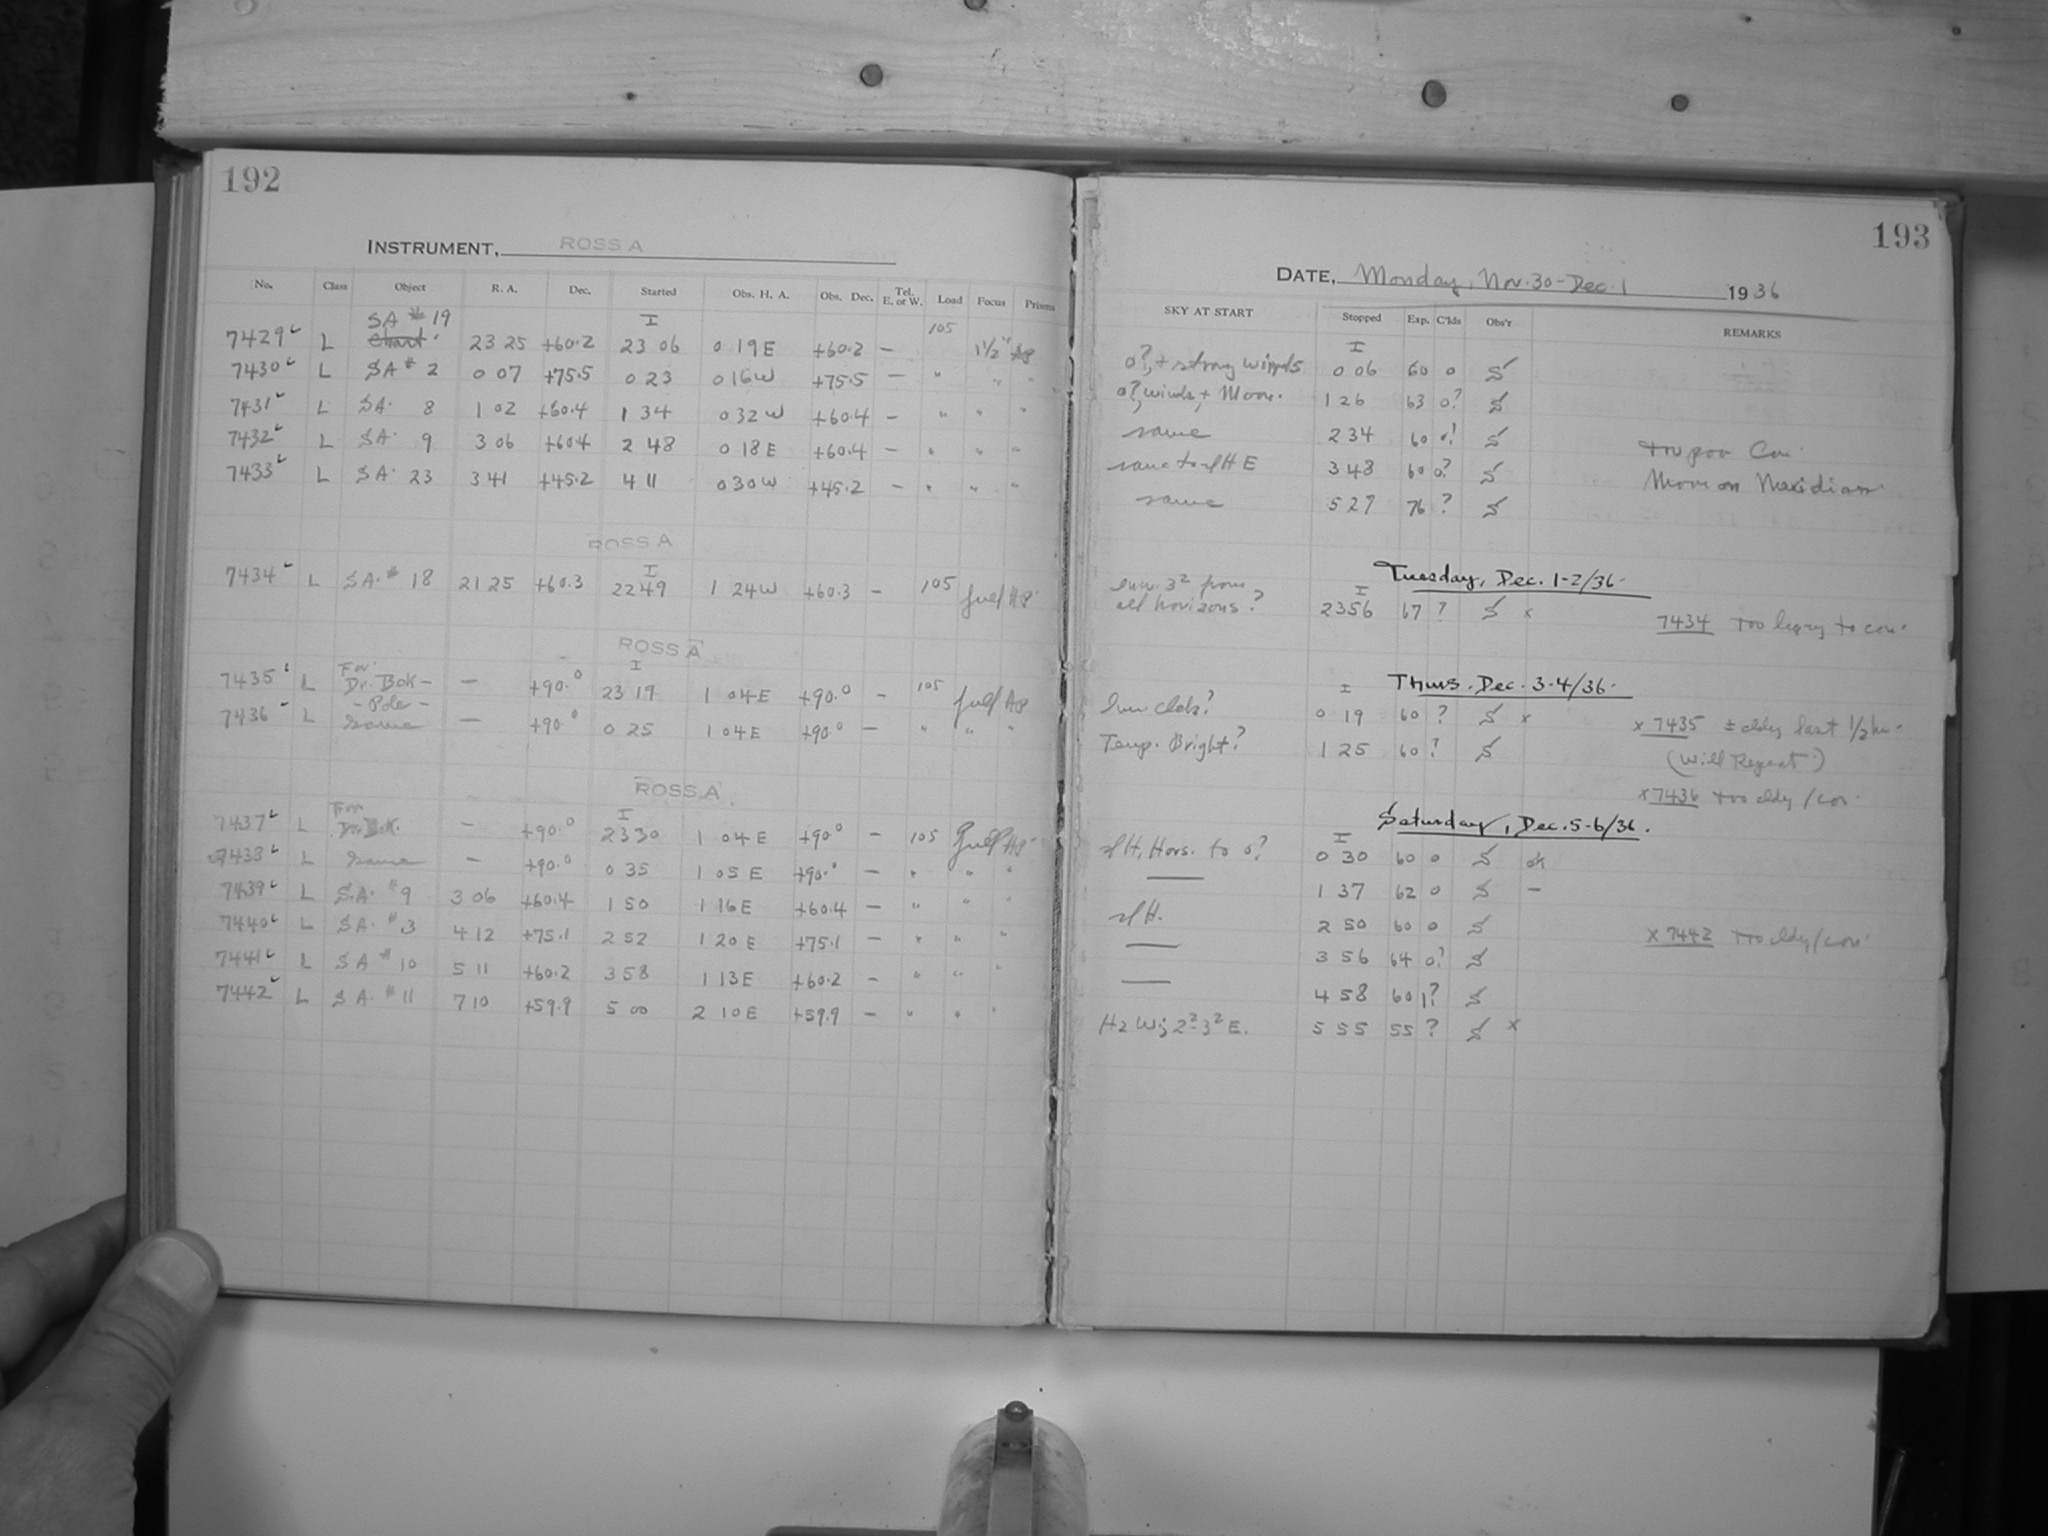 192
INSTRUMENT, ROSS A
No. Class Object R. A. Dec. Started Obs. H. A. Obs. Dec. Tel. E. or W. Load Focus Prisms
SA # 19 I 105
7429 L Chart 23 25 +60.2 23 06 0 19 E +60.2 — 1½" Ap
7430 L SA # 2 0 07 +75.5 0 23 0 16 W +75.5 — " " "
7431 L SA. 8 1 02 +60.4 1 34 0 32 W +60.4 — " " "
7432 L SA. 9 3 06 +60.4 2 48 0 18 E +60.4 — " " "
7433 L SA. 23 3 41 +45.2 4 11 0 30 W +45.2 — " " "
ROSS A
I
7434 L SA. # 18 21 25 +60.3 22 49 1 24 W +60.3 — 105 full Ap
ROSS A
For I
7435 L Dr. Bok — — +90.0 23 19 1 04 E +90.0 — 105 full Ap
- Pole -
7436 L Same — +90.0 0 25 1 04 E +90.0 — " " "
ROSS A
For I
7437 L Dr. Bok. — +90.0 23 30 1 04 E +90.0 — 105 full Ap
7438 L Same — +90.0 0 35 1 05 E +90.0 — " " "
7439 L S.A. # 9 3 06 +60.4 1 50 1 16 E +60.4 — " " "
7440 L SA. # 3 4 12 +75.1 2 52 1 20 E +75.1 — " " "
7441 L SA # 10 5 11 +60.2 3 58 1 13 E +60.2 — " " "
7442 L SA. # 11 7 10 +59.9 5 00 2 10 E +59.9 — " " "
193
DATE, Monday, Nov. 30 - Dec. 1 1936
SKY AT START Stopped Exp. C'lds Obs'r REMARKS
I
0?, + strong winds 0 06 60 0 S
0?, winds, + Moon. 1 26 63 0? S
same 2 34 60 0? S Too poor Con.
same to slH E 3 48 60 0? S Moon on Meridian
same 5 27 76 ? S
Tuesday, Dec. 1-2/36.
3² from I
all horizons? 23 56 67 ? S x 7434 too to con.
Thurs. Dec. 3-4/36.
I
Clds? 0 19 60 ? S x x 7435 ± cldy last ½ hr.
Temp. Bright? 1 25 60 ? S (Will Repeat)
x 7436 too cldy / con.
Saturday, Dec. 5-6/36.
I
slH, Hors. to 0? 0 30 60 0 S ok
— 1 37 62 0 S —
slH. 2 50 60 0 S x 7442 too cldy / con.
— 3 56 64 0? S
— 4 58 60 1? S
Hz W; 2²-3² E. 5 55 55 ? S x